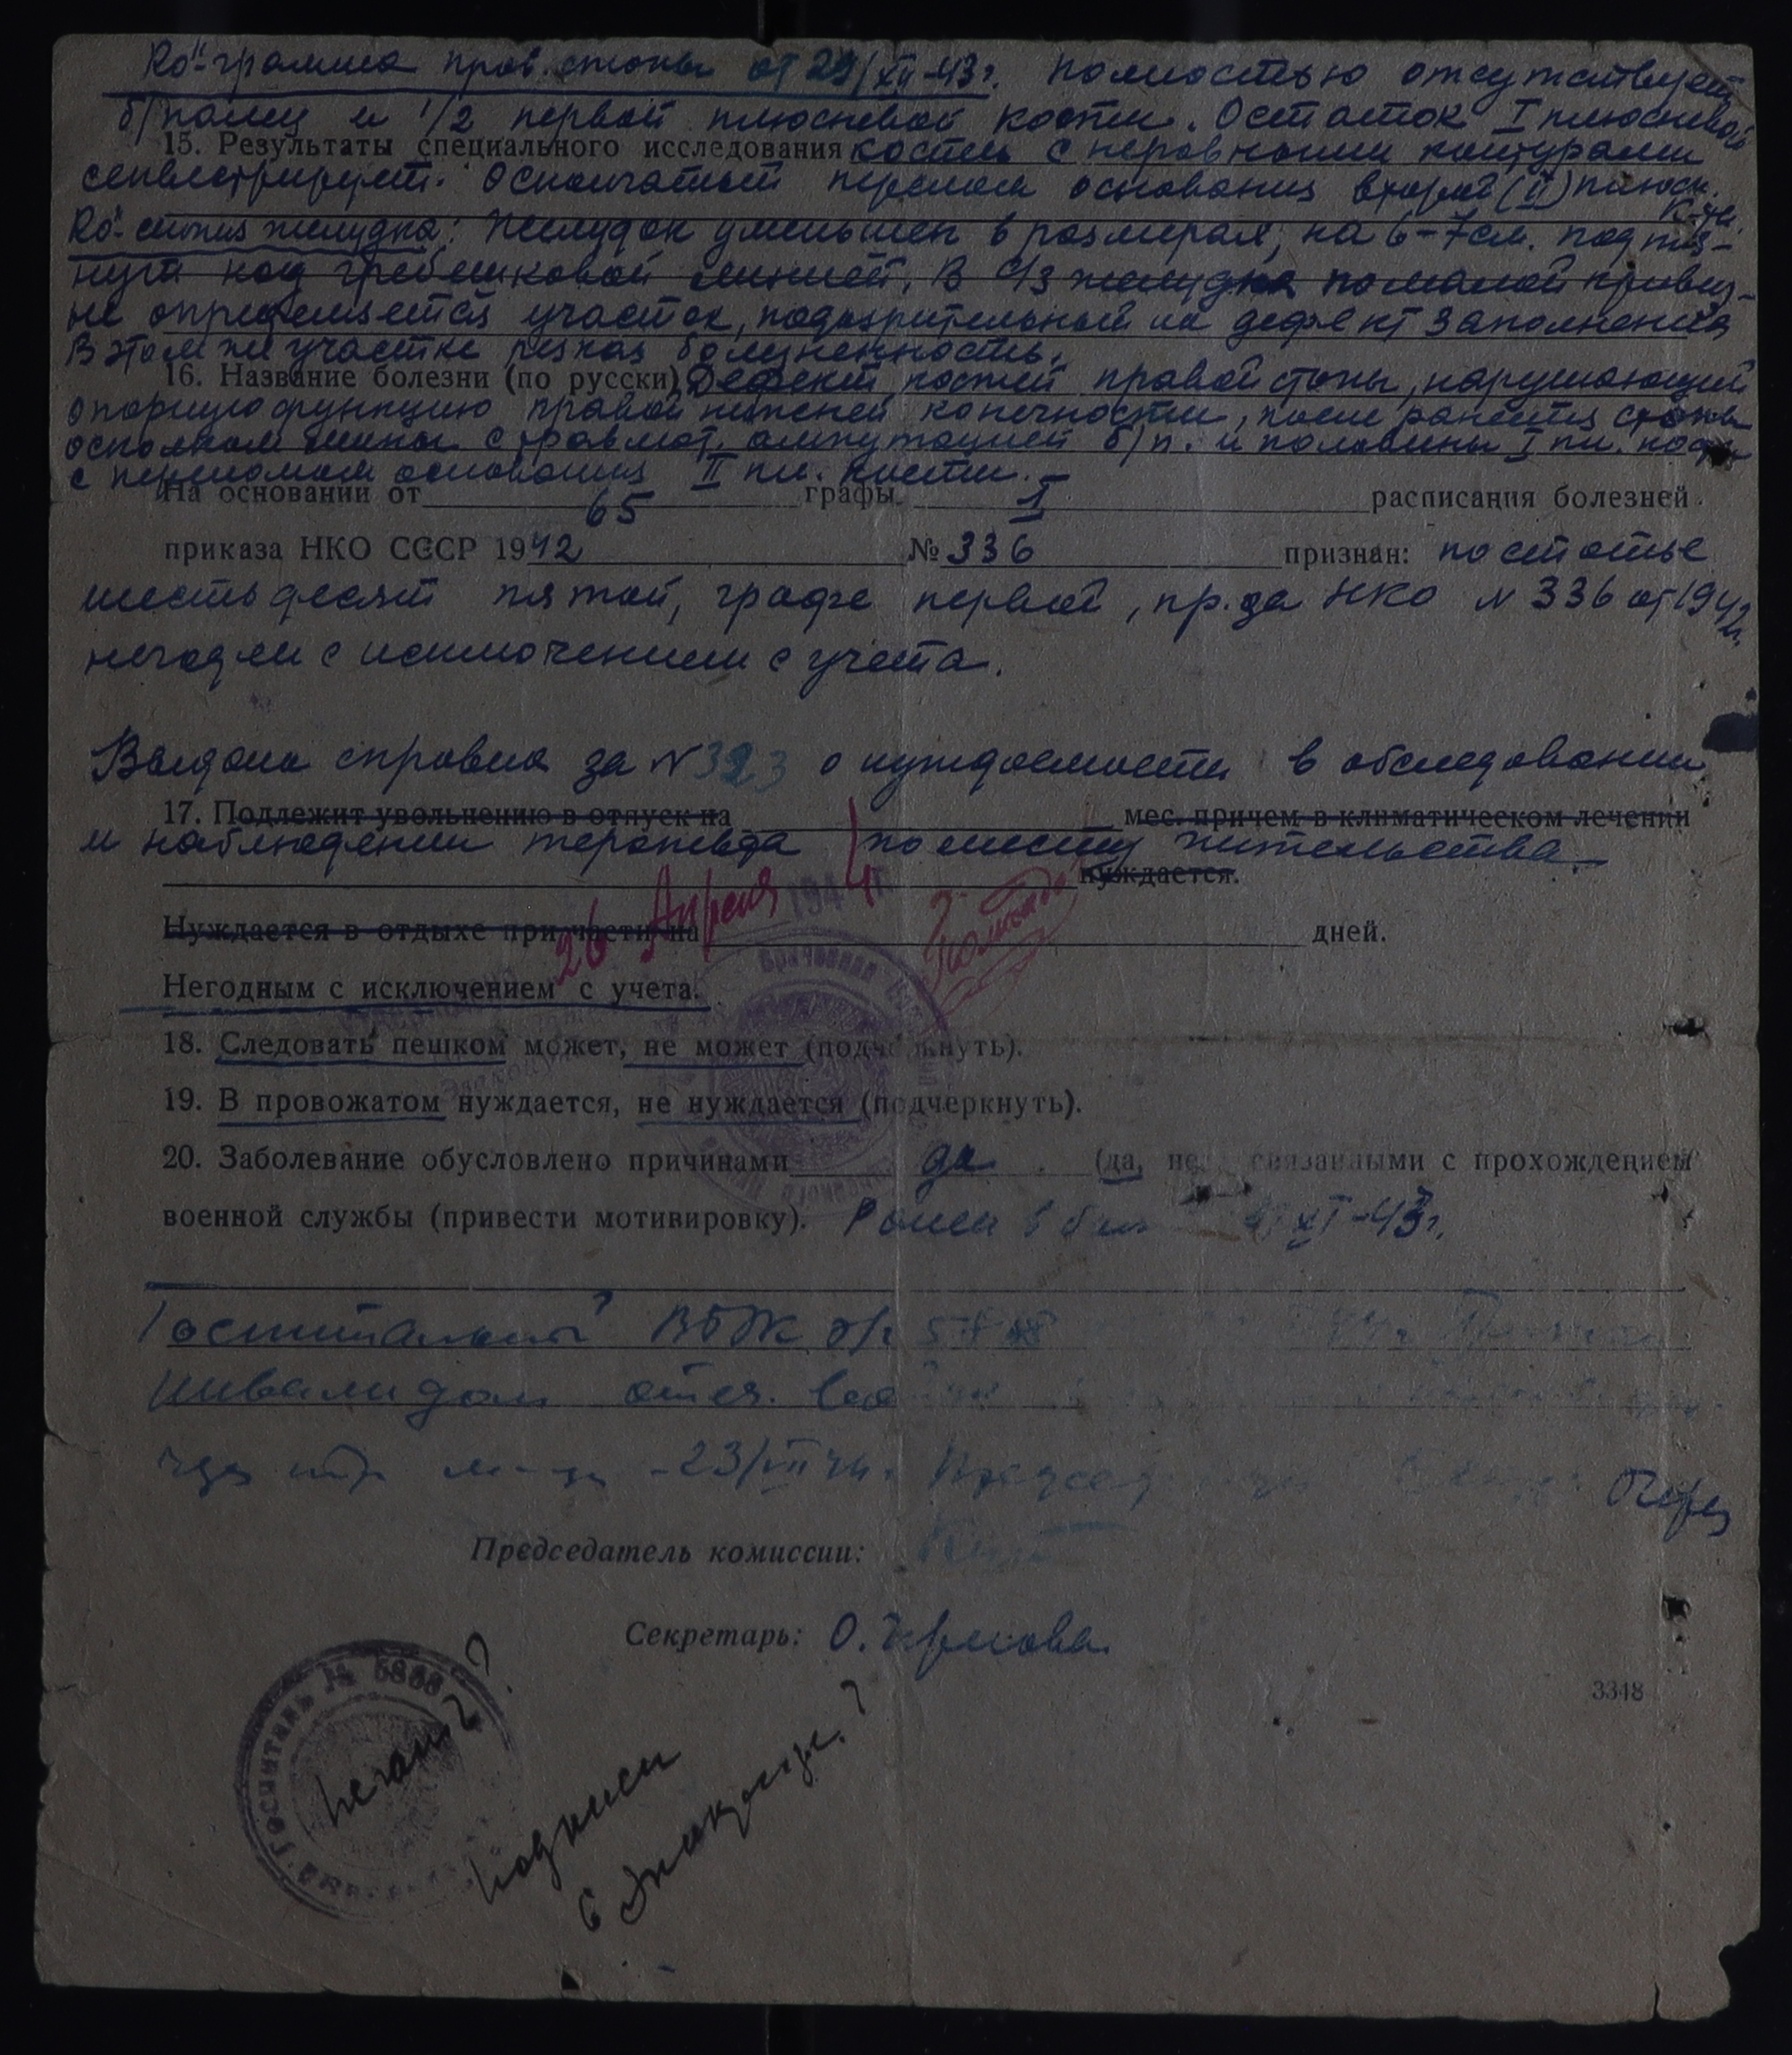 Ro"-грамма прав. стопы от 29/XII-43г. Полностью отсутствует
б/палец и 1/2 первой плюсневой кости. Остаток I плюсневой
15. Результаты специального исследования кости с неровными контурами
секвестрирует. Оскольчатый перелом основания второй (II) плюсн.
к-ти.
Ro"-скопия желудка: Желудок уменьшен в размерах, на 6-7 см. подтя-
нут над гребешковой линией. В с/3 желудка по малой кривиз-
не определяется участок, подозрительный на дефект заполнения
В этом же участке резкая болезненность.
16. Название болезни (по русски) Дефект костей правой стопы, нарушающий
опорную функцию правой нижней конечности, после ранения стопы
осколком мины с травмат. ампутацией б/п. и половины I пл. кости
с переломом основания II пл. кости.
На основании от 65 графы I расписания болезней
приказа НКО СССР 1942 № 336 признан: по статье
шестьдесят пятой, графе первой, пр. да НКО N 336 от 1942г.
негоден с исключением с учета.
Выдана справка за N 323 о нуждаемости в обследовании
17. Подлежит увольнению в отпуск на мес. причем в климатическом лечении
и наблюдении терапевта по месту жительства
нуждается.
26 Апреля 1944 г.
Нуждается в отдыхе при части на дней.
Негодным с исключением с учета.
18. Следовать пешком может, не может (подчеркнуть).
19. В провожатом нуждается, не нуждается (подчеркнуть).
20. Заболевание обусловлено причинами да (да, не связанными с прохождением
военной службы (привести мотивировку). Ранен в XI-43г.
Госпитальной ВТЭК
инвалидом отеч.
Председатель комиссии:
Секретарь: О.
Госпиталь №
печать?
подписи
3348